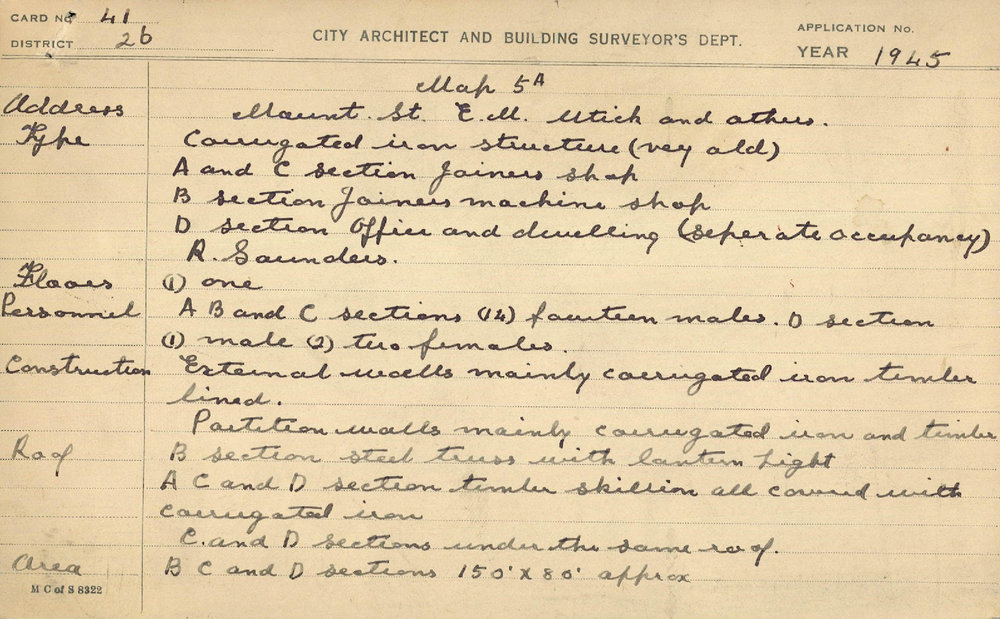 CARD No 41
DISTRICT 26
CITY ARCHITECT AND BUILDING SURVEYOR'S DEPT.
APPLICATION No.
YEAR 1945
Map 5A
Address Mount. St. E.M. Utick and others.
Type Corrugated iron structure (very old)
A and C section Joiners shop
B section Joiners machine shop
D section Office and dwelling (seperate occupancy)
R. Saunders.
Floors (1) one
Personnel A B and C sections (14) fourteen males. D section
(1) male (2) two females.
Construction External walls mainly corrugated iron timber
lined.
Partition walls mainly corrugated iron and timber
Roof B section steel truss with lantern light
A C and D section timber skillion all covered with
corrugated iron
C. and D sections under the same roof.
Area B C and D sections 150' x 80' approx
M C of S 8322